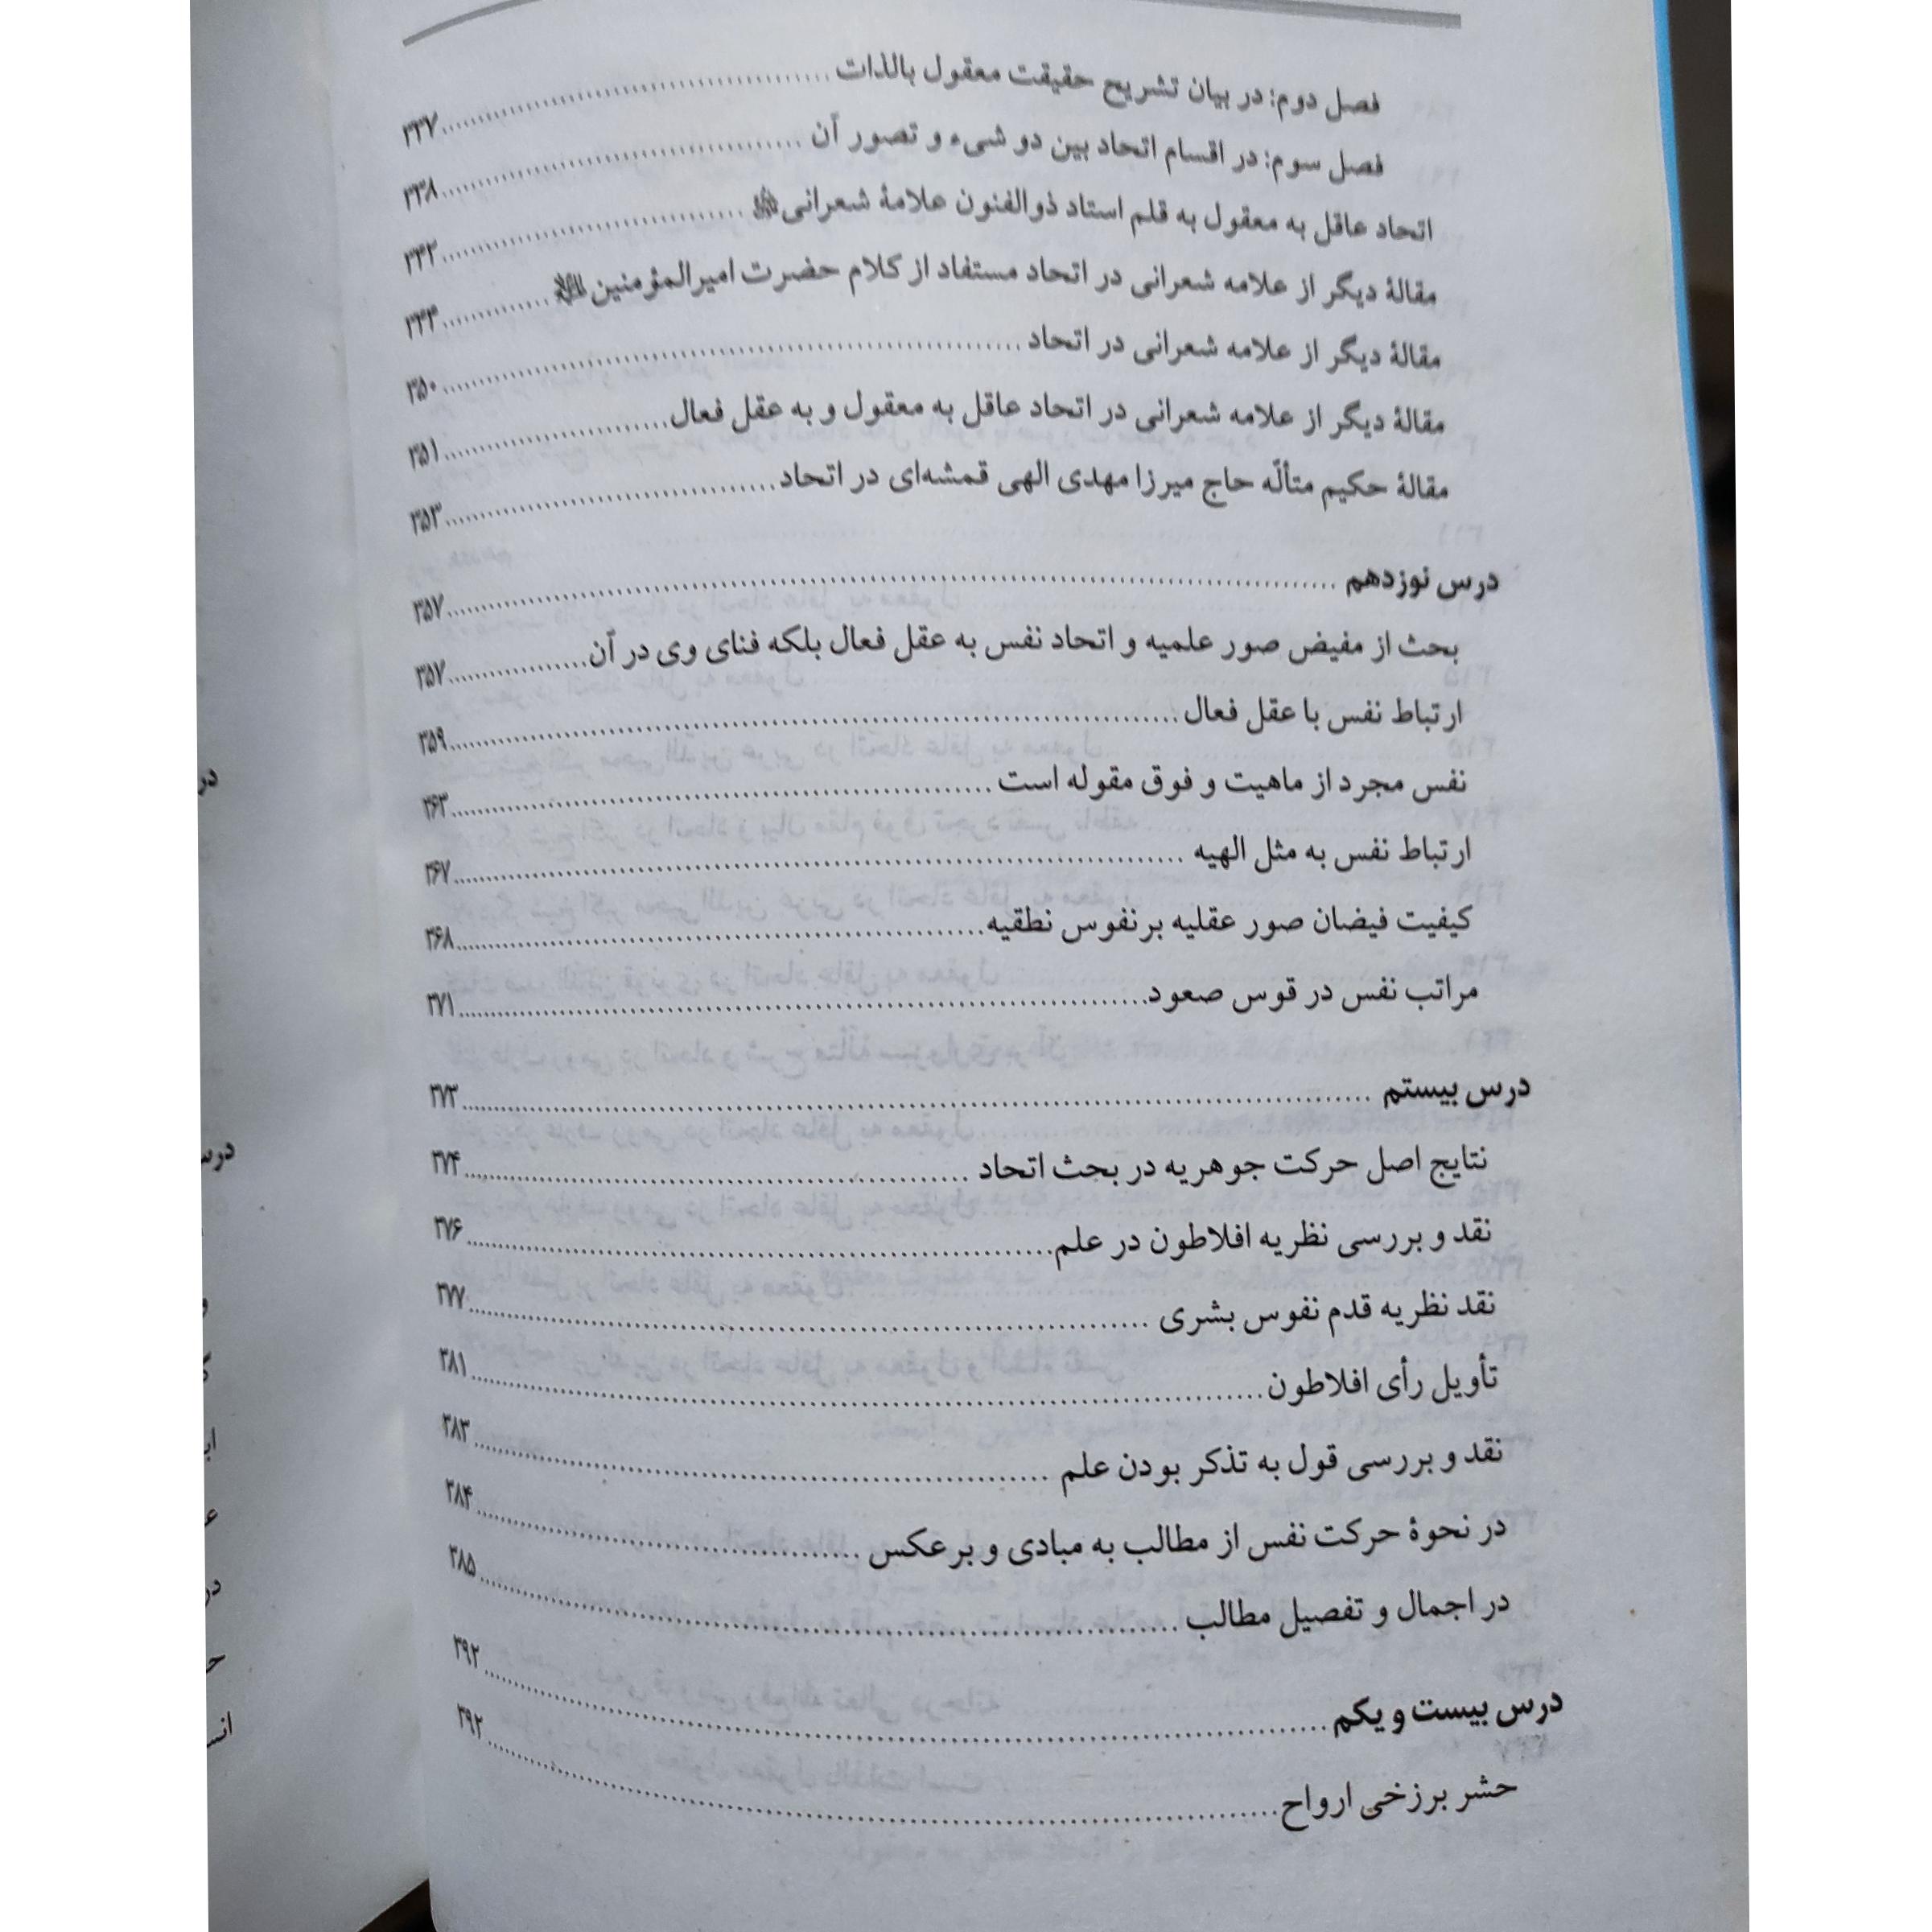 فصل دوم: در بیان تشریح حقیقت معقول بالذات ........ ۳۳۷
فصل سوم: در اقسام اتحاد بین دو شیء و تصور آن ........ ۳۳۸
اتحاد عاقل به معقول به قلم استاد ذوالفنون علامهٔ شعرانی ........ ۳۴۲
مقالهٔ دیگر از علامه شعرانی در اتحاد مستفاد از کلام حضرت امیرالمؤمنین ........ ۳۴۴
مقالهٔ دیگر از علامه شعرانی در اتحاد ........ ۳۵۰
مقالهٔ دیگر از علامه شعرانی در اتحاد عاقل به معقول و به عقل فعال ........ ۳۵۱
مقالهٔ حکیم متألّه حاج میرزا مهدی الهی قمشه‌ای در اتحاد ........ ۳۵۳
درس نوزدهم ........ ۳۵۷
بحث از مفیض صور علمیه و اتحاد نفس به عقل فعال بلکه فنای وی در آن ........ ۳۵۷
ارتباط نفس با عقل فعال ........ ۳۵۹
نفس مجرد از ماهیت و فوق مقوله است ........ ۳۶۳
ارتباط نفس به مثل الهیه ........ ۳۶۷
کیفیت فیضان صور عقلیه بر نفوس نطقیه ........ ۳۶۸
مراتب نفس در قوس صعود ........ ۳۷۱
درس بیستم ........ ۳۷۳
نتایج اصل حرکت جوهریه در بحث اتحاد ........ ۳۷۴
نقد و بررسی نظریه افلاطون در علم ........ ۳۷۶
نقد نظریه قدم نفوس بشری ........ ۳۷۷
تأویل رأی افلاطون ........ ۳۸۱
نقد و بررسی قول به تذکر بودن علم ........ ۳۸۳
در نحوهٔ حرکت نفس از مطالب به مبادی و برعکس ........ ۳۸۴
در اجمال و تفصیل مطالب ........ ۳۸۵
درس بیست و یکم ........ ۳۹۲
حشر برزخی ارواح ........ ۳۹۲